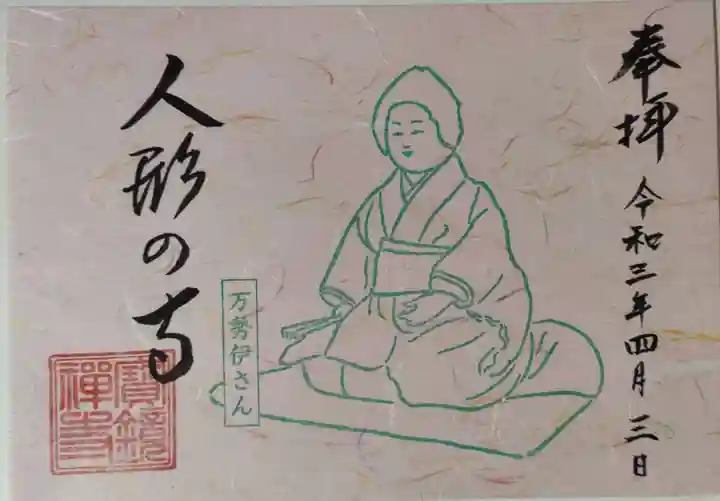 奉拝 令和三年四月三日
万勢伊さん
人形の寺
寶鏡禪寺